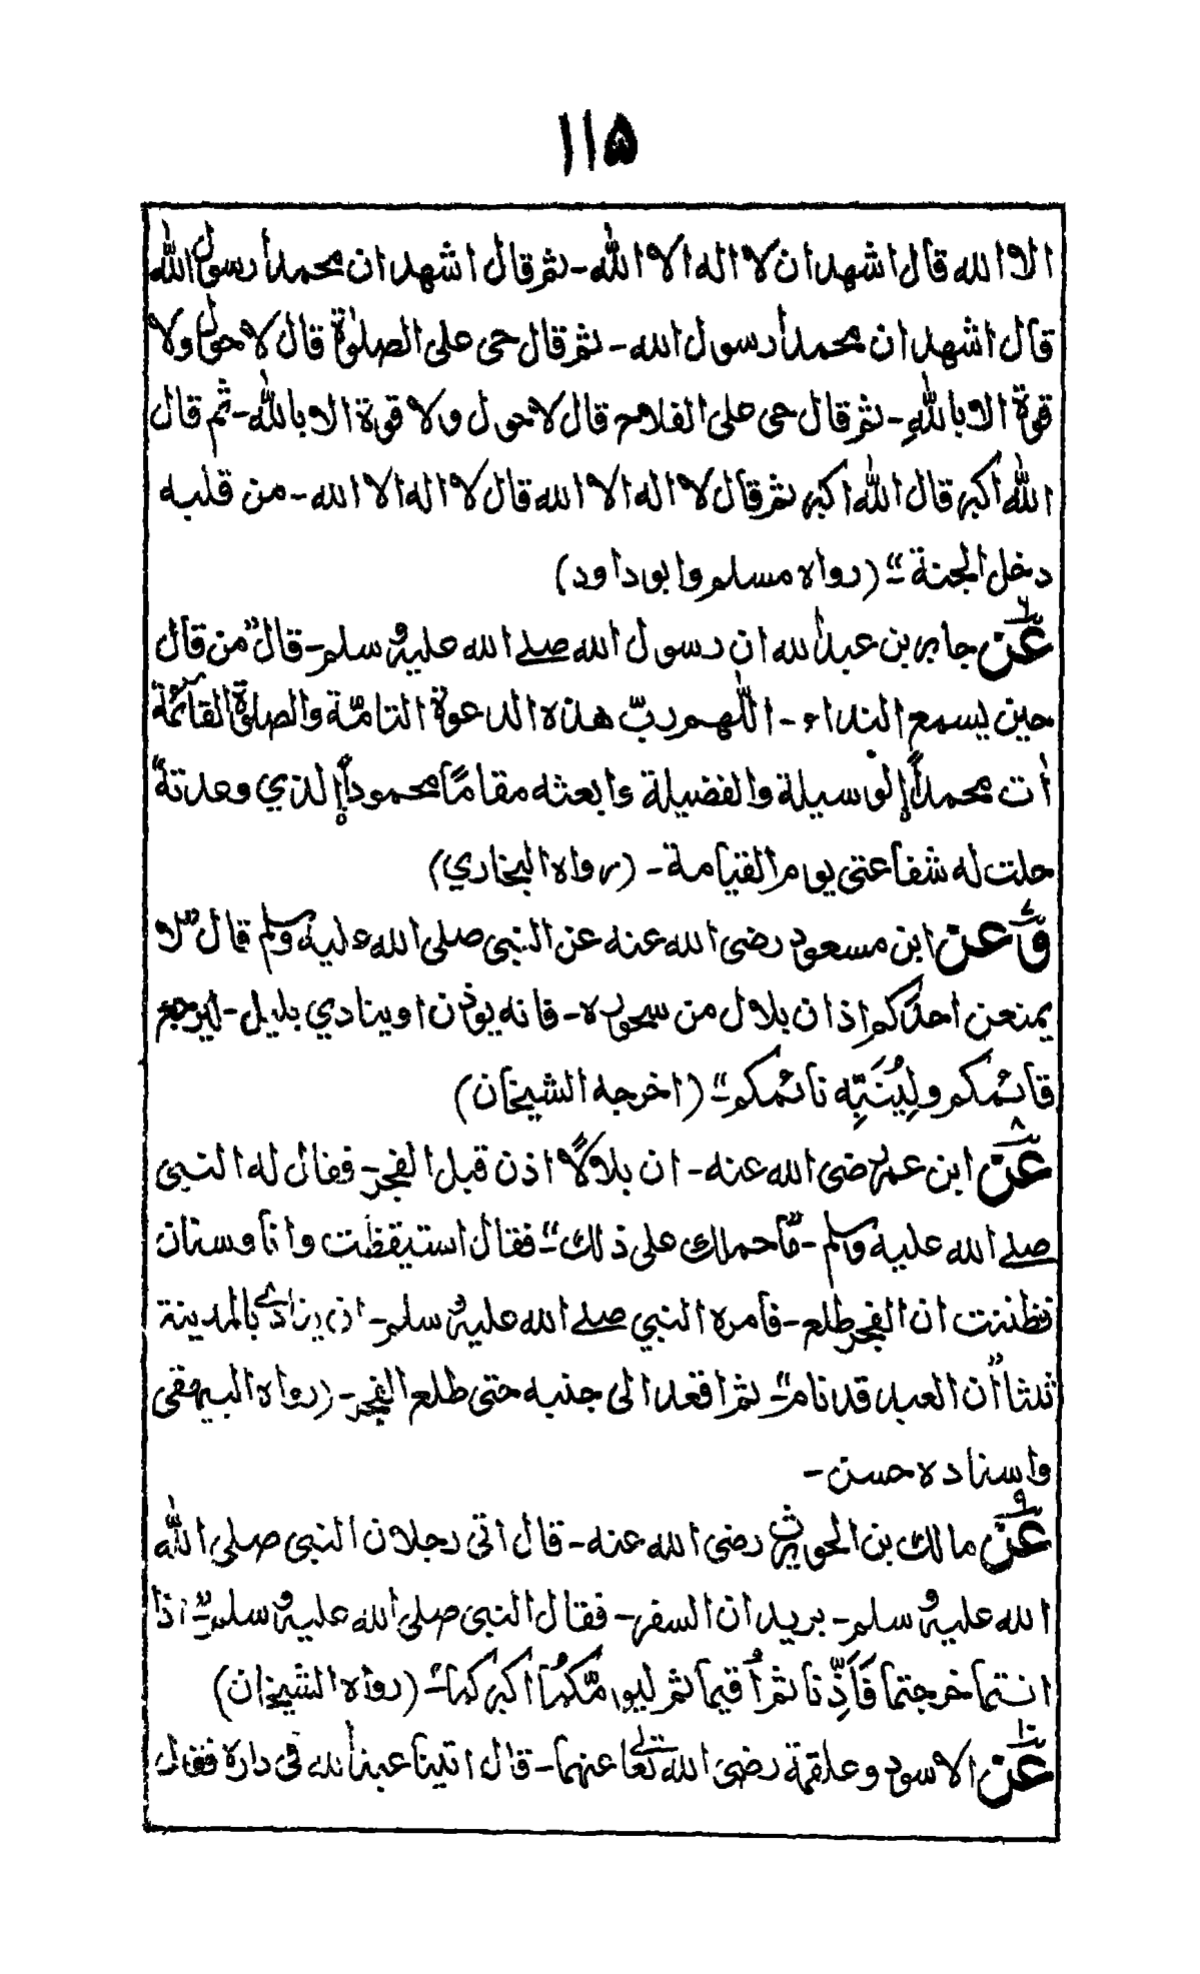 ۱۱۵
الا الله قال اشهد ان لا اله الا الله - ثم قال اشهد ان محمداً رسول الله
قال اشهد ان محمداً رسول الله - ثم قال حى على الصلوٰة قال لا حول ولا
قوة الا باللهِ - ثم قال حى على الفلاح قال لا حول ولا قوة الا بالله - ثم قال
الله اكبر قال الله اكبر ثم قال لا اله الا الله قال لا اله الا الله - من قلبه
دخل الجنة" - (رواه مسلم وابوداود)
عَن۶ جابر بن عبدالله ان رسول الله صلے الله عليه وسلم - قال "من قال
حين يسمع النداء - اللّٰهم ربّ هذه الدعوة التامّة والصلوٰة القآئمة
اٰت محمداً إلوسيلة والفضيلة وابعثه مقامًا محموداً إلذي وعدتهٗ
حلت له شفاعتى يوم القيامة - (رواه البخاري)
وَعن۷ ابن مسعود رضى الله عنه عن النبى صلى الله عليه وسلم قال "لا
يمنعن احدكم اذان بلال من سحوره - فانه يوذن اوينادي بليل - ليرجع
قائمكم ولِيُنَبِّه نائمكم" - (اخرجه الشيخان)
عَن۸ ابن عمر رضى الله عنه - ان بلالًا اذن قبل الفجر - فقال له النبى
صلے الله عليه وسلم - "مآحملك على ذلك" - فقال استيقظت وانا وسنان
فظننت ان الفجر طلع - فامره النبي صلے الله عليه وسلم - ان ينادے بالمدينة
ثلثا "ان العبد قد نام" - ثم اقعد الى جنبه حتى طلع الفجر - (رواه البيهقى
واسناده حسن -
عَن۹ مالك بن الحويرث رضى الله عنه - قال اتى رجلان النبى صلى الله
الله عليه وسلم - يريدان السفر - فقال النبى صلى الله عليه وسلم - "اذا
انتما خرجتما فَاَذِّنا ثم اُقيما ثم ليومّكمُا اكبركما" - (رواه الشيخان)
عَن۱۰ الاسود وعلقمة رضى الله تعالى عنهما - قال اتينا عبدالله فى داره فقال